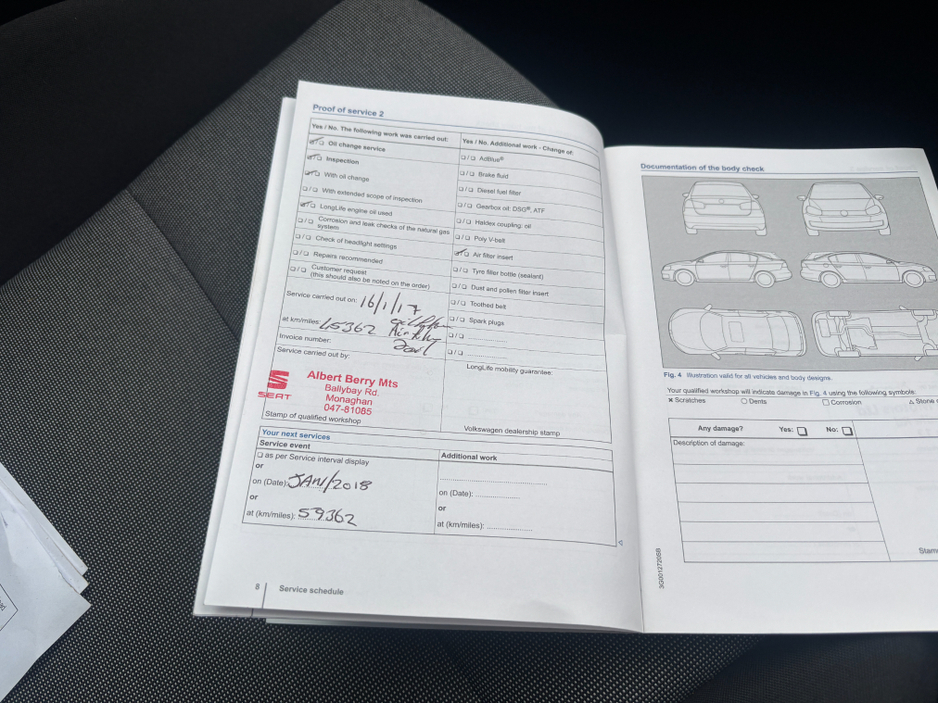 Proof of service 2
Yes / No. The following work was carried out:
☑/❏ Oil change service
☑/❏ Inspection
☑/❏ With oil change
❏/❏ With extended scope of inspection
☑/❏ LongLife engine oil used
❏/❏ Corrosion and leak checks of the natural gas
system
❏/❏ Check of headlight settings
❏/❏ Repairs recommended
❏/❏ Customer request
(this should also be noted on the order)
Service carried out on: 16/1/17
at km/miles: 45362
Invoice number:
Service carried out by:
SEAT
Albert Berry Mts
Ballybay Rd.
Monaghan
047-81085
Stamp of qualified workshop
Yes / No. Additional work - Change of:
❏/❏ AdBlue®
❏/❏ Brake fluid
❏/❏ Diesel fuel filter
❏/❏ Gearbox oil: DSG®, ATF
❏/❏ Haldex coupling: oil
❏/❏ Poly V-belt
☑/❏ Air filter insert
❏/❏ Tyre filler bottle (sealant)
❏/❏ Dust and pollen filter insert
❏/❏ Toothed belt
❏/❏ Spark plugs
❏/❏ ....................
❏/❏ ....................
LongLife mobility guarantee:
Volkswagen dealership stamp
Your next services
Service event
❏ as per Service interval display
or
on (Date): JAN/2018
or
at (km/miles): 59362
Additional work
on (Date): ....................
or
at (km/miles): ....................
8
Service schedule
Documentation of the body check
Fig. 4 Illustration valid for all vehicles and body designs.
Your qualified workshop will indicate damage in Fig. 4 using the following symbols:
✕ Scratches
○ Dents
□ Corrosion
Any damage?
Yes: ❏
No: ❏
Description of damage:
3G0012720SB